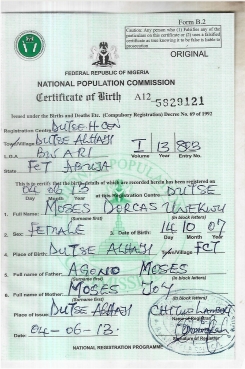 Form B.2
Caution: Any person who (1) Falsifies any of the
particulars on this certificate or (2) uses a falsified
certificate as true knowing it to be false is liable to
prosecution
ORIGINAL
FEDERAL REPUBLIC OF NIGERIA
NATIONAL POPULATION COMMISSION
Certificate of Birth A12 5829121
Issued under the Births and Deaths Etc. (Compulsory Registration) Decree No. 69 of 1992
Registration Centre DUTSE
Town/Village DUTSE ALHAJI I 13 853
L.G.A. Volume Year Entry No.
State FCT ABUJA
This is to certify that the birth details of which are recorded herein have been registered on
04 13 at this Registration Centre DUTSE
Day Month Year
1. Full Name: MOSES DORCAS
(Surname first) (in block letters)
2. Sex: FEMALE 3. Date of Birth: 14 10 07
Day Month Year
4. Place of Birth: DUTSE ALHAJI Town/Village FCT
5. Full name of Father: MOSES
(Surname first) (in block letters)
6. Full name of Mother: MOSES JOY
(Surname first) (in block letters)
Place of Issue: DUTSE ALHAJI
Name of Registrar
Date: 04-06-13
Signature of Registrar
NATIONAL REGISTRATION PROGRAMME